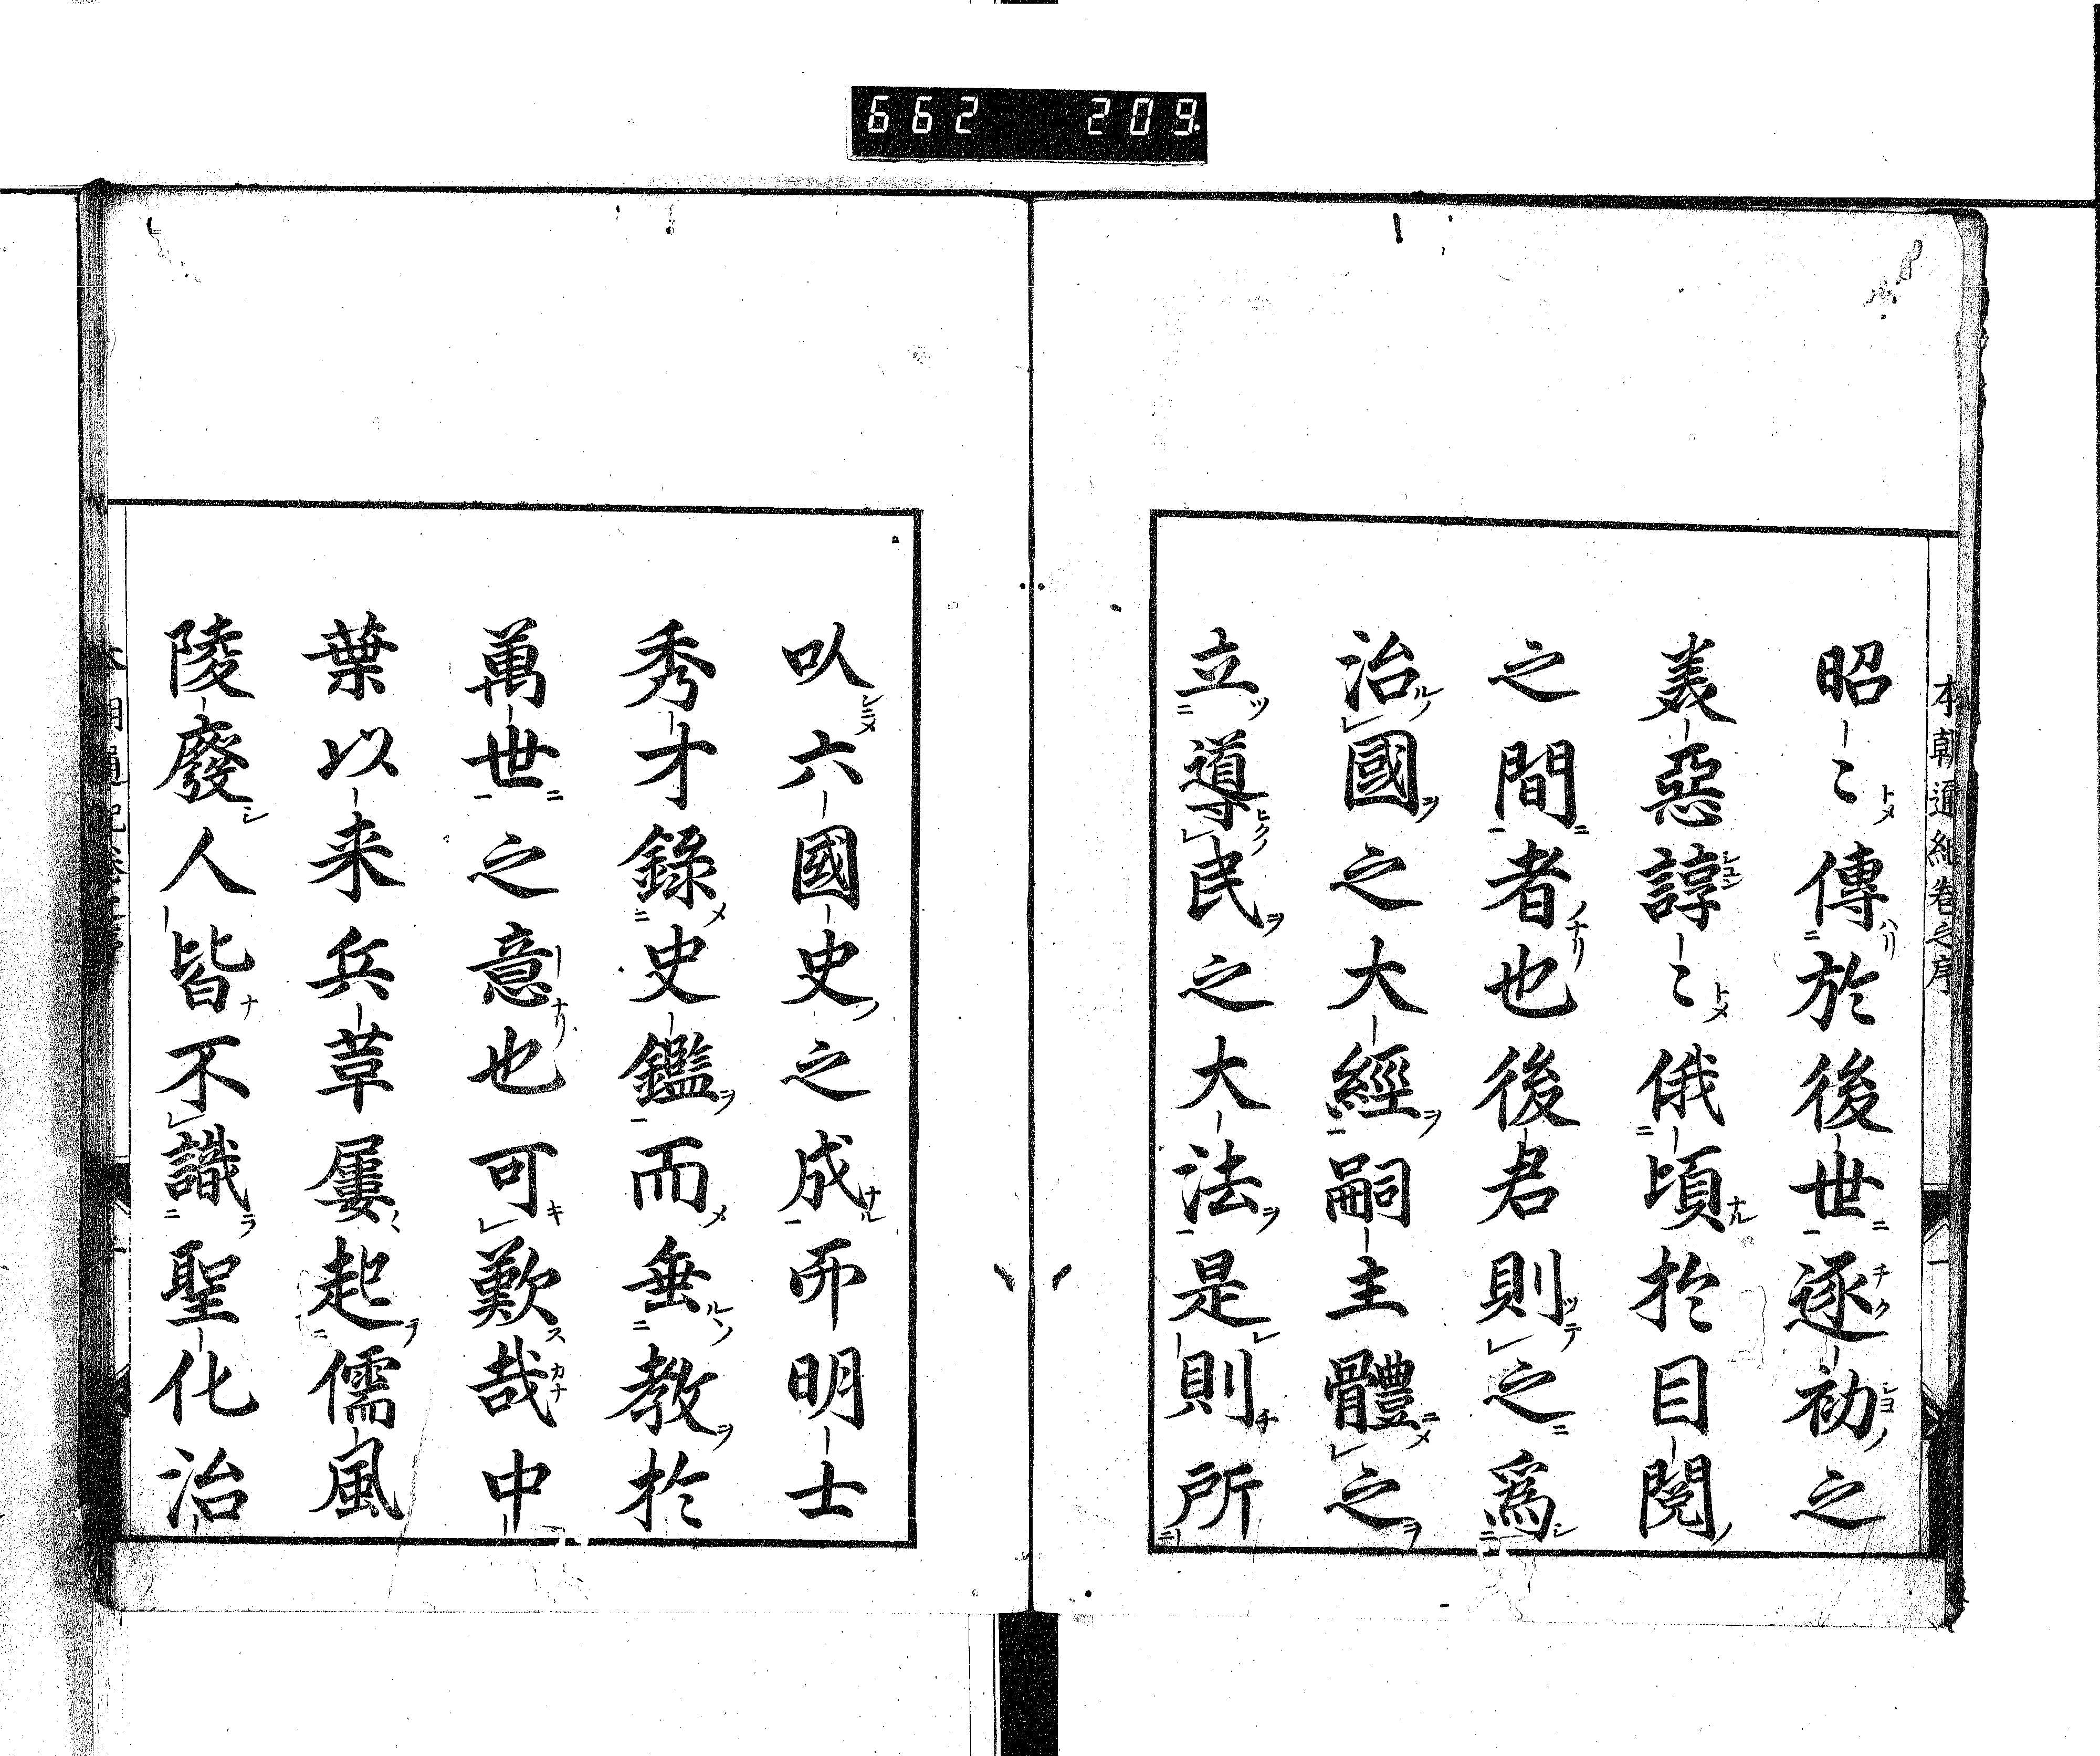 662 209
本朝通紀卷之序
一
昭〻傳於後世逐初之
美惡諄〻俄頃於目閱
之間者也後君則之爲
治國之大經嗣主體之
立導民之大法是則所
㕥六國史之成而明士
秀才錄史鑑而垂教於
萬世之意也可歎哉中
葉以来兵革屢起儒風
陵廢人皆不識聖化治